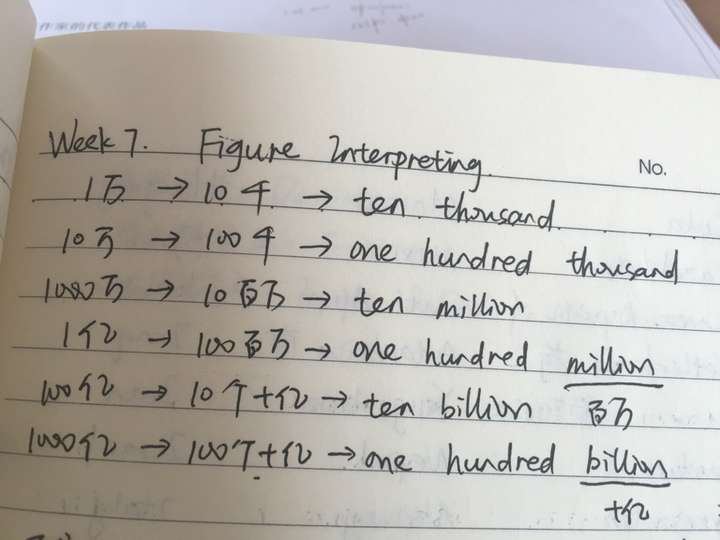 作家的代表作品
Week 7. Figure Interpreting
No.
1万 → 10千 → ten thousand
10万 → 100千 → one hundred thousand
1000万 → 10百万 → ten million
1亿 → 100百万 → one hundred million
100亿 → 10个十亿 → ten billion 百万
1000亿 → 100个十亿 → one hundred billion
十亿